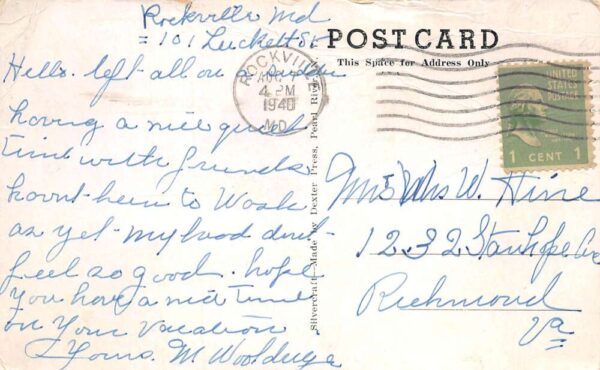 Rockville Md
= 101 Luckett St
Hello. left all on a sudden
having a nice quiet
time with friends
havnt been to Wash
as yet - my head dont
feel so good. hope
you have a nice time
on your vacation
Yours. M. Wooldridge
POST CARD
This Space for Address Only
ROCKVILLE
AUG
4 PM
1940
MD.
UNITED
STATES
POSTAGE
1 CENT 1
Silvercraft—Made by Dexter Press, Pearl River
Mr & Mrs W. Hine
1232 Stanhope Ave
Richmond
Va